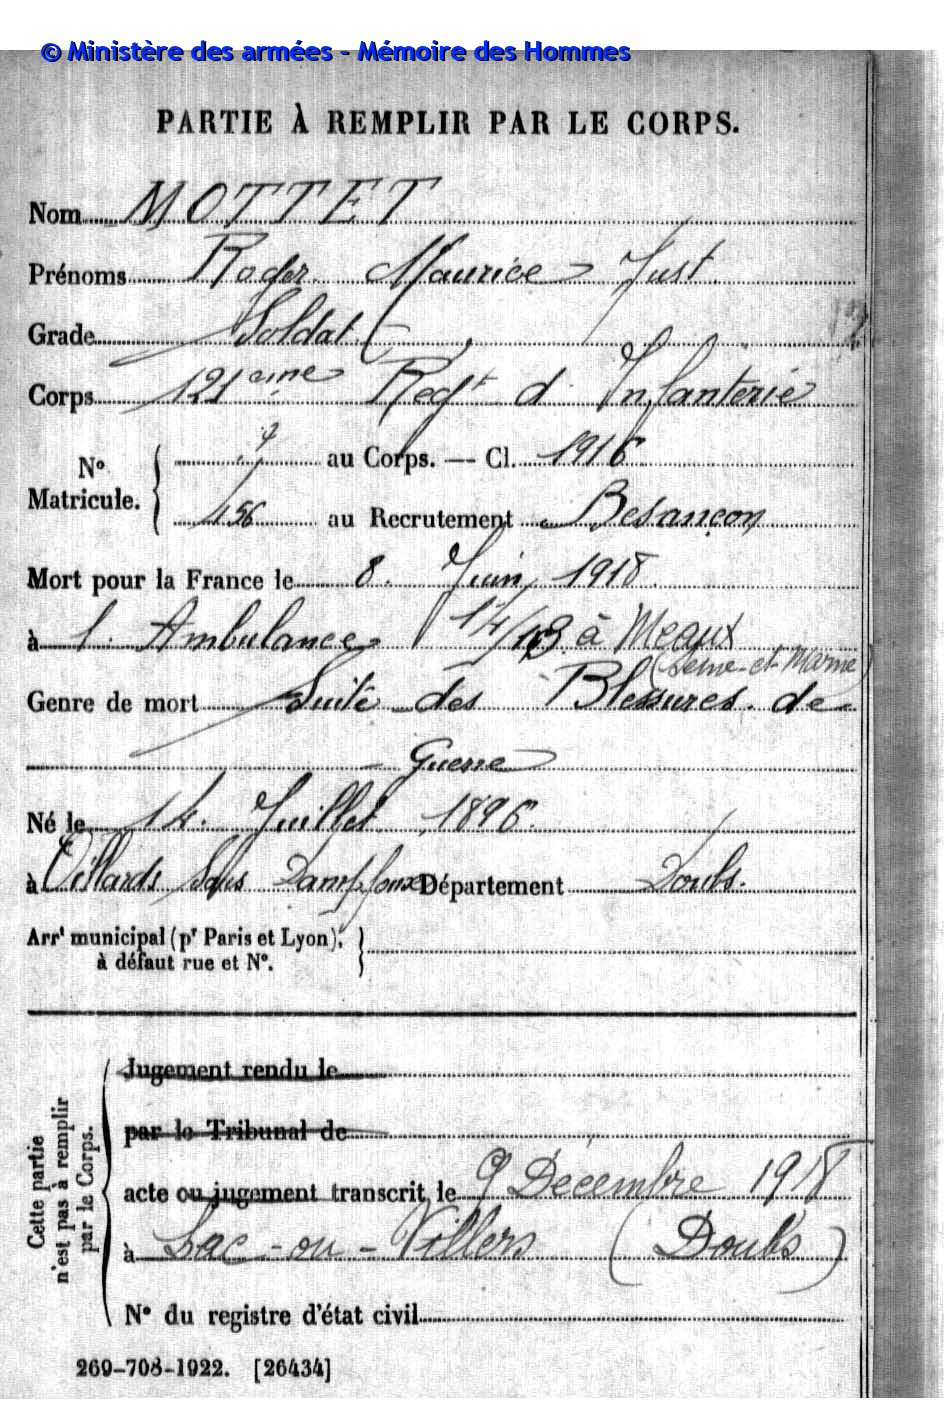 © Ministère des armées - Mémoire des Hommes
PARTIE À REMPLIR PAR LE CORPS.
Nom MOTTET
Prénoms Roger Maurice Just
Grade Soldat
Corps 121eme Regt d'Infanterie
N° Matricule. { ? au Corps. — Cl. 1916
156 au Recrutement Besançon
Mort pour la France le 8 Juin 1918
à l'Ambulance à Meaux
(Seine-et-Marne)
Genre de mort Suite des Blessures de
Guerre
Né le 14 Juillet 1896
à Villards Sous Dampjoux Département Doubs.
Arrt municipal (pr Paris et Lyon),
à défaut rue et N°.
Cette partie n'est pas à remplir par le Corps.
Jugement rendu le
par le Tribunal de
acte ou jugement transcrit le 9 Décembre 1918
à Lac-ou-Villers (Doubs)
N° du registre d'état civil
269-708-1922. [26434]